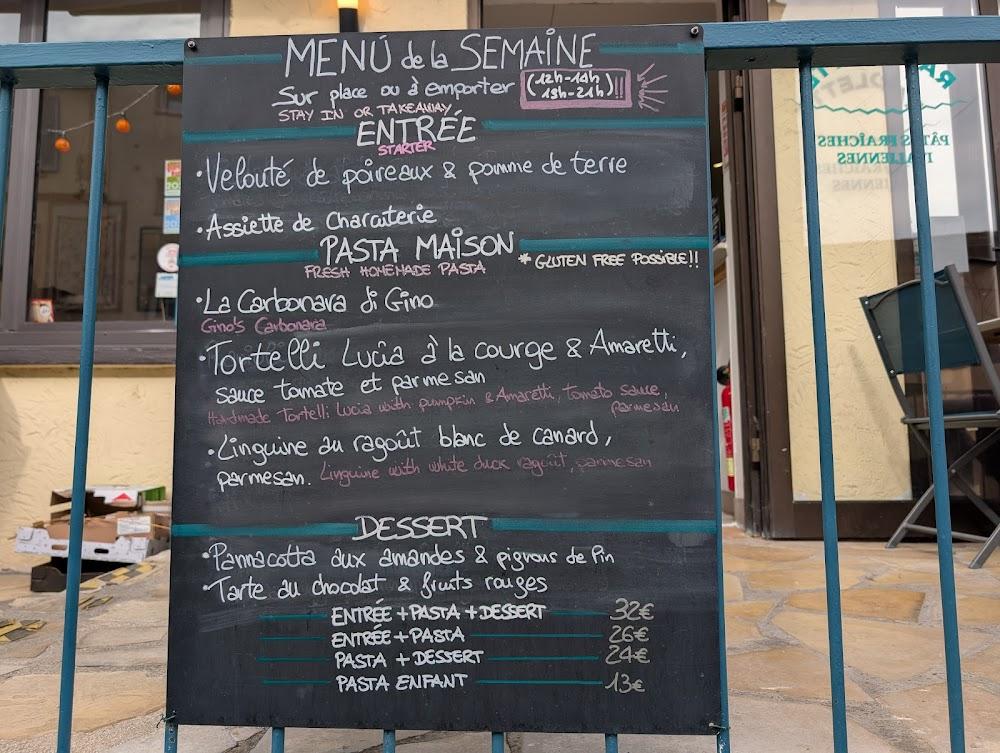 MENÚ de la SEMAINE
Sur place ou à emporter (12h-14h
19h-21h)!!!
STAY IN OR TAKEAWAY
ENTRÉE
STARTER
• Velouté de poireaux & pomme de terre
• Assiette de Charcuterie
PASTA MAISON
FRESH HOMEMADE PASTA * GLUTEN FREE POSSIBLE!!
• La Carbonara di Gino
Gino's Carbonara
• Tortelli Lucia à la courge & Amaretti,
sauce tomate et parmesan
Handmade Tortelli Lucia with pumpkin & Amaretti, Tomato sauce,
parmesan
• Linguine au ragoût blanc de canard,
parmesan. Linguine with white duck ragoût, parmesan
DESSERT
• Pannacotta aux amandes & pignons de Pin
• Tarte au chocolat & fruits rouges
ENTRÉE + PASTA + DESSERT 32€
ENTRÉE + PASTA 26€
PASTA + DESSERT 24€
PASTA ENFANT 13€
PÂTES FRAÎCHES
ITALIENNES